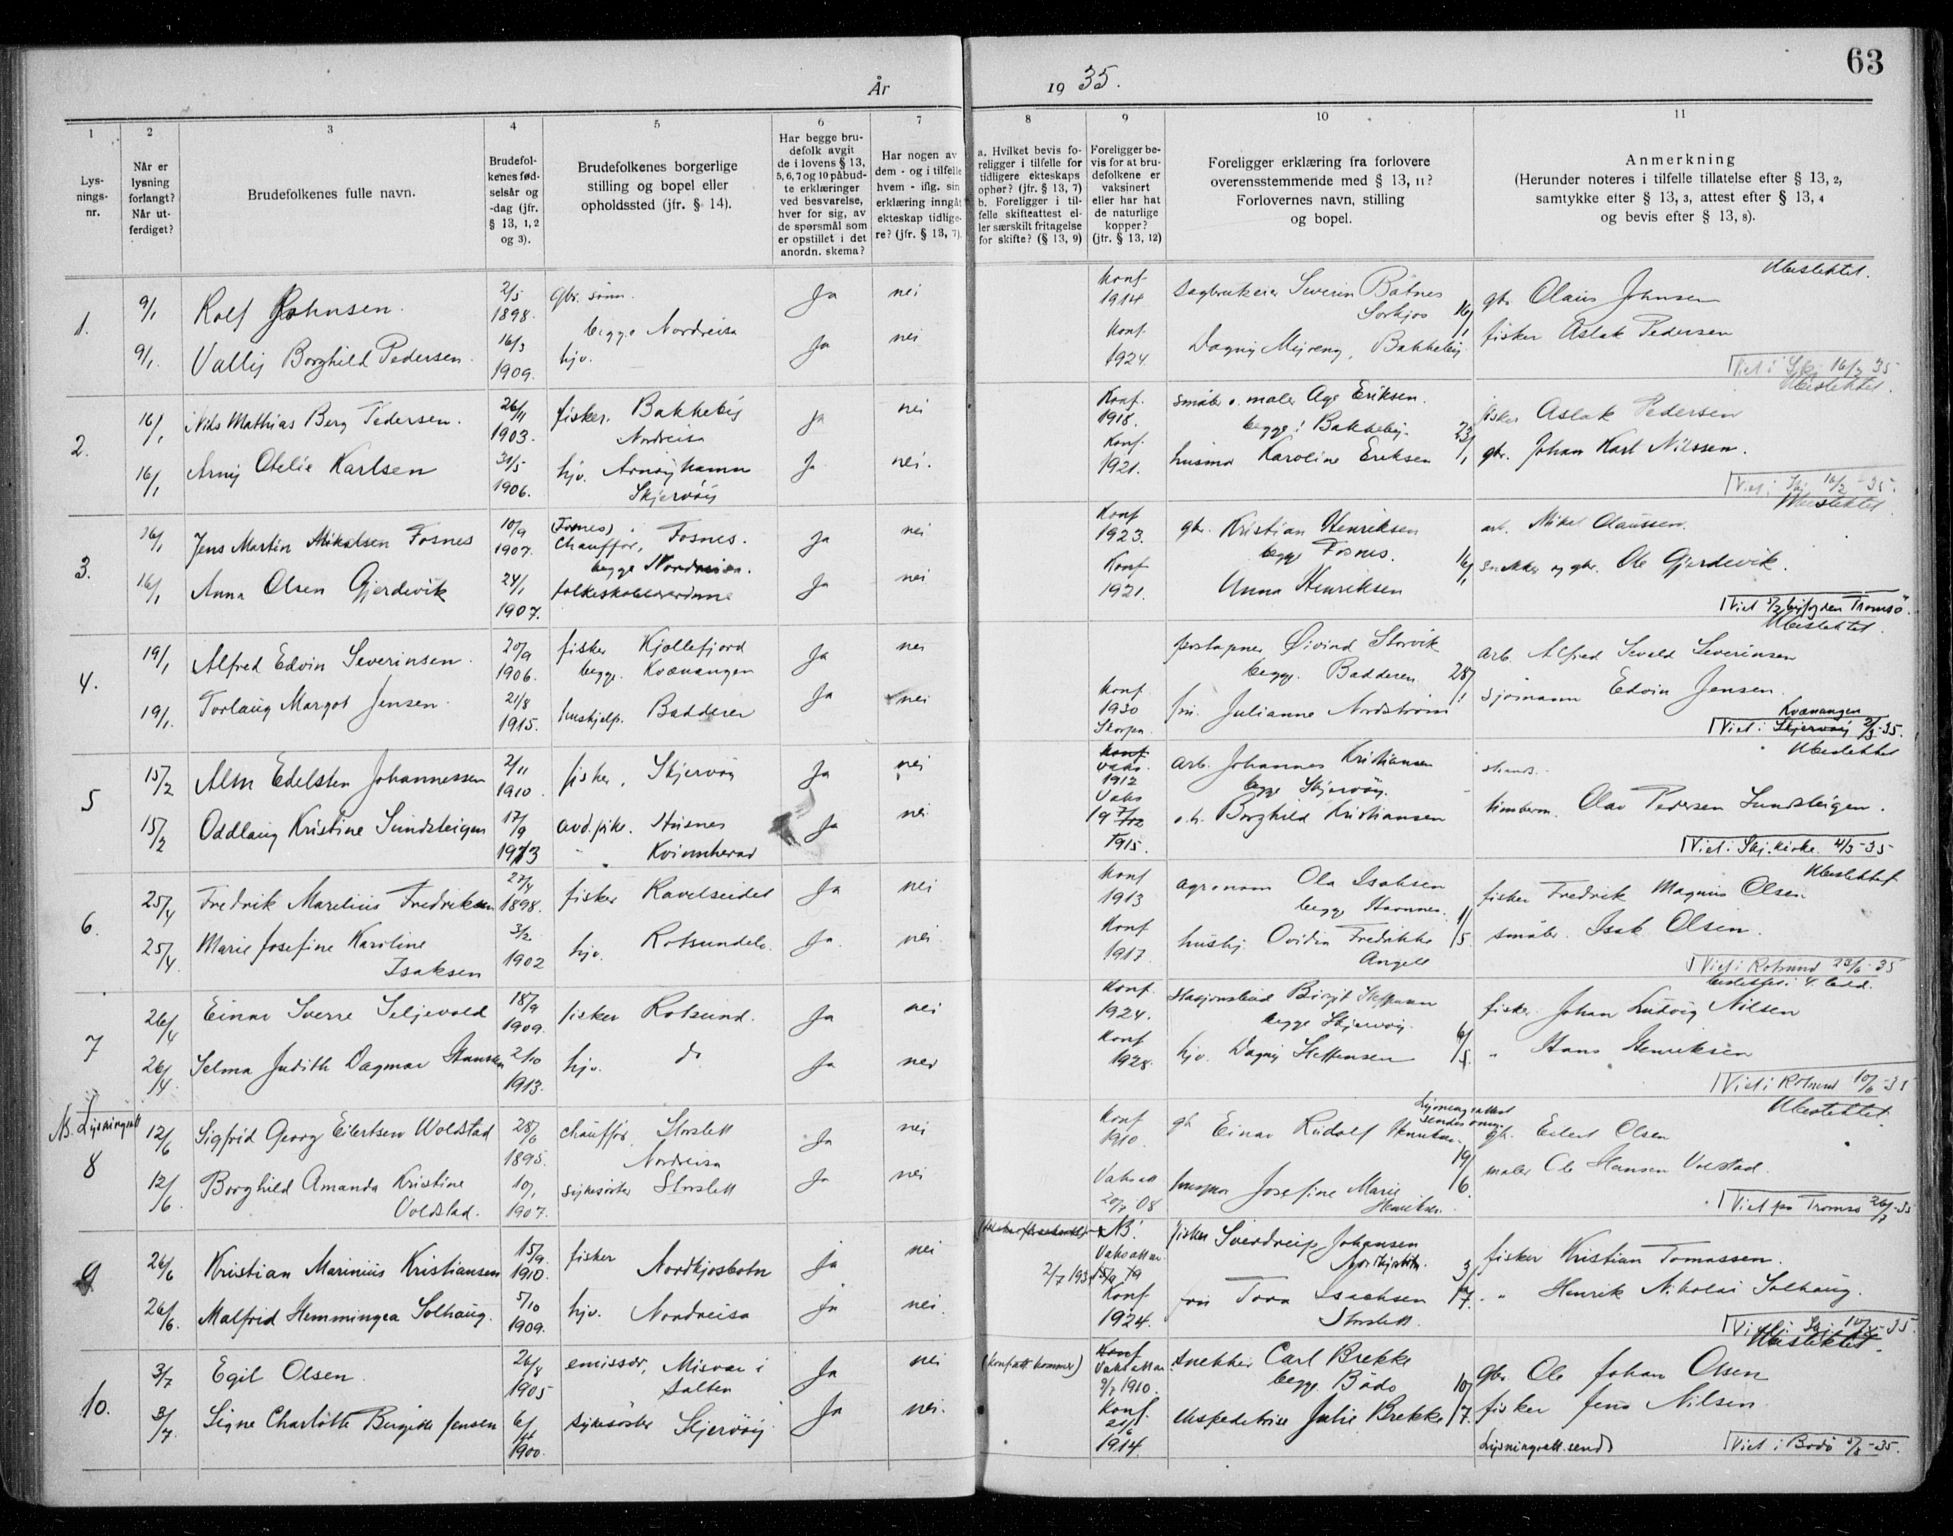 63
År 1935.
1 2 3 4 5 6 7 8 9 10 11
Lysningsnr.
Når er lysning forlangt? Når utferdiget?
Brudefolkenes fulle navn.
Brudefolkenes fødselsår og -dag (jfr. § 13, 1, 2 og 3).
Brudefolkenes borgerlige stilling og bopel eller opholdssted (jfr. § 14).
Har begge brudefolk avgit de i lovens § 13, 5, 6, 7 og 10 påbudte erklæringer ved besvarelse, hver for sig, av de spørsmål som er opstillet i det anordn. skema?
Har nogen av dem - og i tilfelle hvem - iflg. sin erklæring inngått ekteskap tidligere? (jfr. § 13, 7).
a. Hvilket bevis foreligger i tilfelle for tidligere ekteskaps ophør? (jfr. § 13, 7) b. Foreligger i tilfelle skifteattest eller særskilt fritagelse for skifte? (§ 13, 9)
Foreligger bevis for at brudefolkene er vaksinert eller har hat de naturlige kopper? (jfr. § 13, 12)
Foreligger erklæring fra forlovere overensstemmende med § 13, 11? Forlovernes navn, stilling og bopel.
Anmerkning (Herunder noteres i tilfelle tillatelse efter § 13, 2, samtykke efter § 13, 3, attest efter § 13, 4 og bevis efter § 13, 8).
Ubeslektet.
1. 9/1 Rolf Johnsen. 2/5 1898. gbr. sønn. Ja nei Konf. 1914 Sagbrukeier Severin Båtnes Sørkjos 16/1 gbr. Olaus Johnsen
begge Nordreisa
9/1. Vally Borghild Pedersen. 16/3 1909. hjv. Ja nei Konf. 1924. Dagny Myreng, Bakkeby. fisker Aslak Pedersen
Viet i Skj. 16/2 35
Ubeslektet.
2. 16/1 Nils Mathias Berg Pedersen. 26/11 1903. fisker. Bakkeby Nordreisa ja nei Konf. 1918. småbr. o. maler Age Eriksen. begge: Bakkeby. 23/1 fisker Aslak Pedersen
16/1 Arny Otelie Karlsen 31/5 1906. hjv. Arnøyhamn Skjervøy Ja nei. Konf. 1921. husmor Karoline Eriksen gbr. Johan Karl Nilssen.
Viet i Skj. 16/2-35.
Ubeslektet
3. 16/1 Jens Martin Mikalsen Fosnes 10/9 1907. (Fosnes) Chauffør, Fosnes. ja nei Konf 1923. gbr. Kristian Henriksen begge Fosnes. 16/1 arb. Mikal Claussen.
begge Nordreisa.
16/1 Anna Olsen Gjerdevik 24/1 1907. folkeskolelærerinne Ja nei Konf 1921. Anna Henriksen snekker og gbr. Ole Gjerdevik.
Viet 5/2 byfogden Tromsø.
Ubeslektet.
4. 19/1 Alfred Edvin Severinsen. 20/9 1906. fisker Kjøllefjord Ja nei poståpner Øivind Storvik begge. Badderen 28/1 arb. Alfred Sevald Severinsen
begge. Kvænangen
19/1. Torlaug Margot Jensen. 21/8 1915. hushjelp. Badderen Ja nei Konf. 1930 frú. Julianne Nordstrøm sjømann Edvin Jensen.
Kvænangen
Viet i Skjervøy 2/3-35.
Ubeslektet
5 15/2 Alm Edelsten Johannessen 2/11 1910. fisker, Skjervøy Ja nei Konf vaks. 1912 arb. Johannes Kristiansen begge Skjervøy.
15/2 Oddlaug Kristine Sundsteigen 17/9 1913 avd.pike. Husnes Kvinnherad Ja nei Vaks 1915. Borghild Kristiansen timberm. Olav Pedersen Sundsteigen.
Viet i Skj. kirke. 4/3-35
Ubeslektet
6. 25/4 Fredrik Marelius Fredriksen 27/4 1898. fisker Ravelseidet Ja nei Konf 1913 agronom Ola Isaksen begge Havnnes. 11/5. fisker Fredrik Magnus Olsen
25/4 Marie Josefine Karoline Isaksen 3/2 1902 hjv. Rotsundelv. Ja. nei. Konf 1917. hushj. Ovidia Fredrikke Angell småbr. Isak Olsen.
Viet i Rotsund 23/6-35
beslektet i 4. ledd.
7 26/4 Einar Sverre Seljevold 18/9 1909. fisker Rotsund. Ja nei Konf. 1924. Stasjonsbud Birgit Steffensen begge Skjervøy. 6/5. fisker Johan Ludvig Nilsen
26/4 Selma Judith Dagmar Hansen 2/10 1913. hjv. do Ja nei Konf 1928. hjv. Dagny Steffensen " Hans Henriksen
Viet i Rotsund 10/6-35
Ubeslektet.
Ns. Lysningsatt
8 12/6 Sigfrid Georg Eilertsen Woldstad 28/6 1895. chauffør Storslett Nordreisa Ja nei Konf 1910. gbr Einar Rudolf Henriksen. Lysningsattest sendes 19/6. gbr. Eilert Olsen
12/6 Borghild Amanda Kristine Voldstad. 10/1 1907. sykesøster Storslett Ja nei Vaksatt 20/7 08 husmor Josefine Marie Henriksen. maler Ole Hansen Volstad.
Viet på Tromsø 26/7-35
9 26/6 Kristian Marinius Kristiansen 15/9 1910. fisker Nordkjosbotn Ja nei 2/7 193 NB! Vaksatt fisker Sverdrup Johansen Nordkjosbotn 3/7. fisker Kristian Tomassen.
26/6. Malfrid Hemmingea Solhaug. 5/10 1909. hjv. Nordreisa Ja nei. Konf 1924. frú Tora Isachsen Storslett. " Henrik Nikolai Solhaug.
Viet i Skj. 10/-35.
Ubeslektet.
10. 3/7 Egil Olsen. 26/8 1905 emissær, Misvær i Salten Ja nei (konf.att. kommer) Konf Vaksattest 9/7 1910. snekker Carl Brekke begge Bodø 10/7. gbr. Ole Johan Olsen
3/7 Signe Charlotte Birgitte Jensen 6/11 1900. sykesøster Skjervøy Ja nei. Konf. 21/6 1914. ekspeditrise Julie Brekke fisker Jens Nilsen.
Lysningsatt. sendt Viet i Bodø 5/8-35.